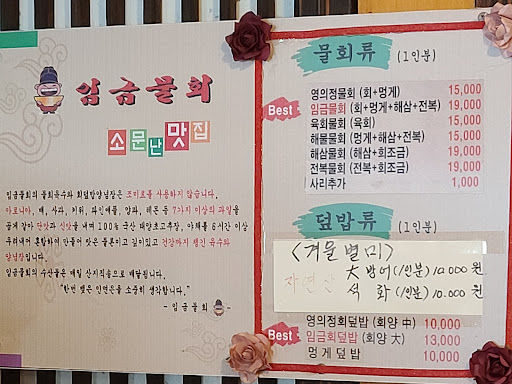 임금물회
소문난 맛집
임금물회의 물회육수와 회덮밥양념장은 조미료를 사용하지 않습니다.
아로니아, 배, 사과, 키위, 파인애플, 양파, 레몬 등 7가지 이상의 과일을
곱게 갈아 단맛과 신맛을 내며 100% 국산 태양초고추장, 야채를 6시간 이상
우려내어 혼합하여 만들어 맛은 물론이고 깊이있고 건강까지 챙긴 육수와
양념장입니다.
임금물회의 수산물은 매일 산지직송으로 배달됩니다.
"한번 맺은 인연은을 소중히 생각합니다."
- 임금물회 -
물회류 (1인분)
영의정물회 (회+멍게) 15,000
Best 임금물회 (회+멍게+해삼+전복) 19,000
육회물회 (육회) 15,000
해물물회 (멍게+해삼+전복) 15,000
해삼물회 (해삼+회조금) 19,000
전복물회 (전복+회조금) 19,000
사리추가 1,000
덮밥류 (1인분)
<겨울별미>
자연산 大방어 (1인분) 12.000원
석화 (1인분) 10.000원
영의정회덮밥 (회양 中) 10,000
Best 임금회덮밥 (회양 大) 13,000
멍게덮밥 10,000